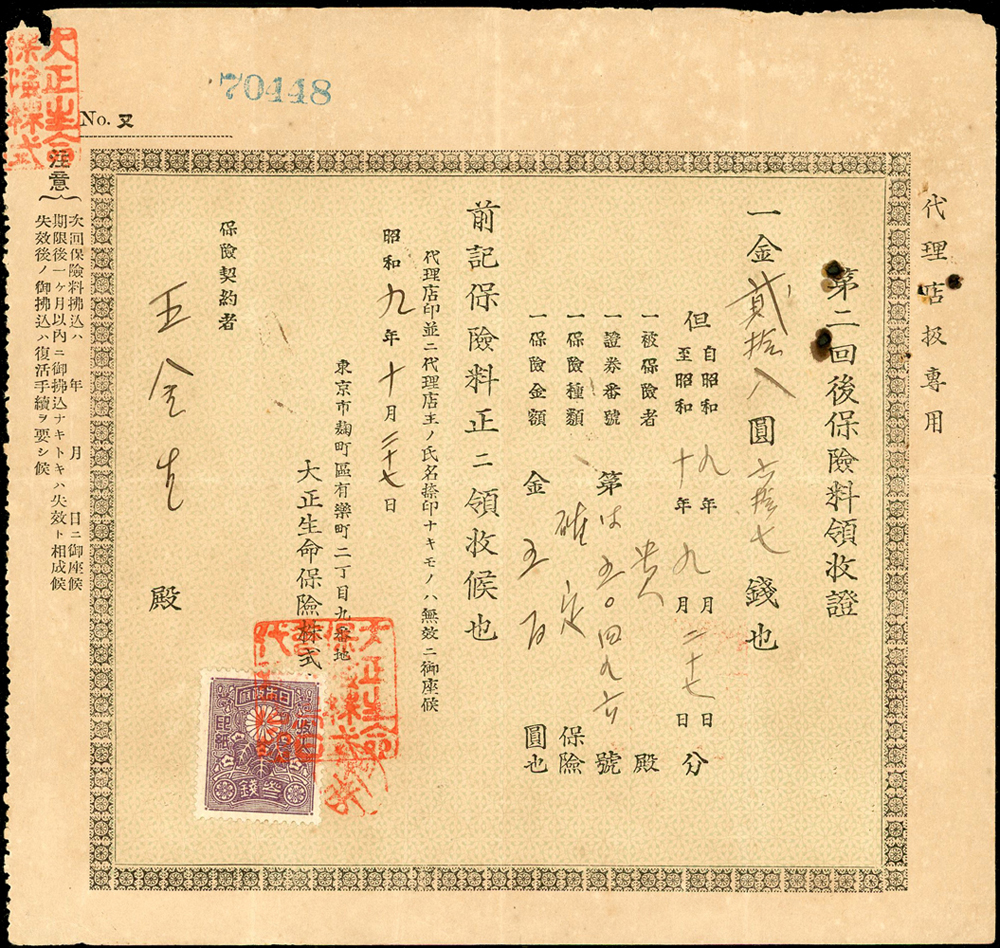 70448
No. 又
大正生命
保險株式
代理店扱専用
第二回後保險料領收證
一金貳拾八圓六拾七錢也
但自昭和九年九月二十七日
至昭和十年九月二十七日分
一被保險者 貴人殿
一證券番號 第は五〇四九六號
一保險種類 確定保險
一保險金額 金五百圓也
前記保險料正ニ領收候也
代理店印並ニ代理店主ノ氏名捺印ナキモノハ無效ニ御座候
昭和九年十月二十七日
東京市麹町區有樂町二丁目九番地
大正生命保險株式
保險契約者
王金生殿
注意
次回保險料拂込ハ 年 月 日ニ御座候
期限後一ケ月以內ニ御拂込ナキトキハ失效ト相成候
失效後ノ御拂込ハ復活手續ヲ要シ候
大正生命
保險株式
日本政府
收入
印紙
叁錢